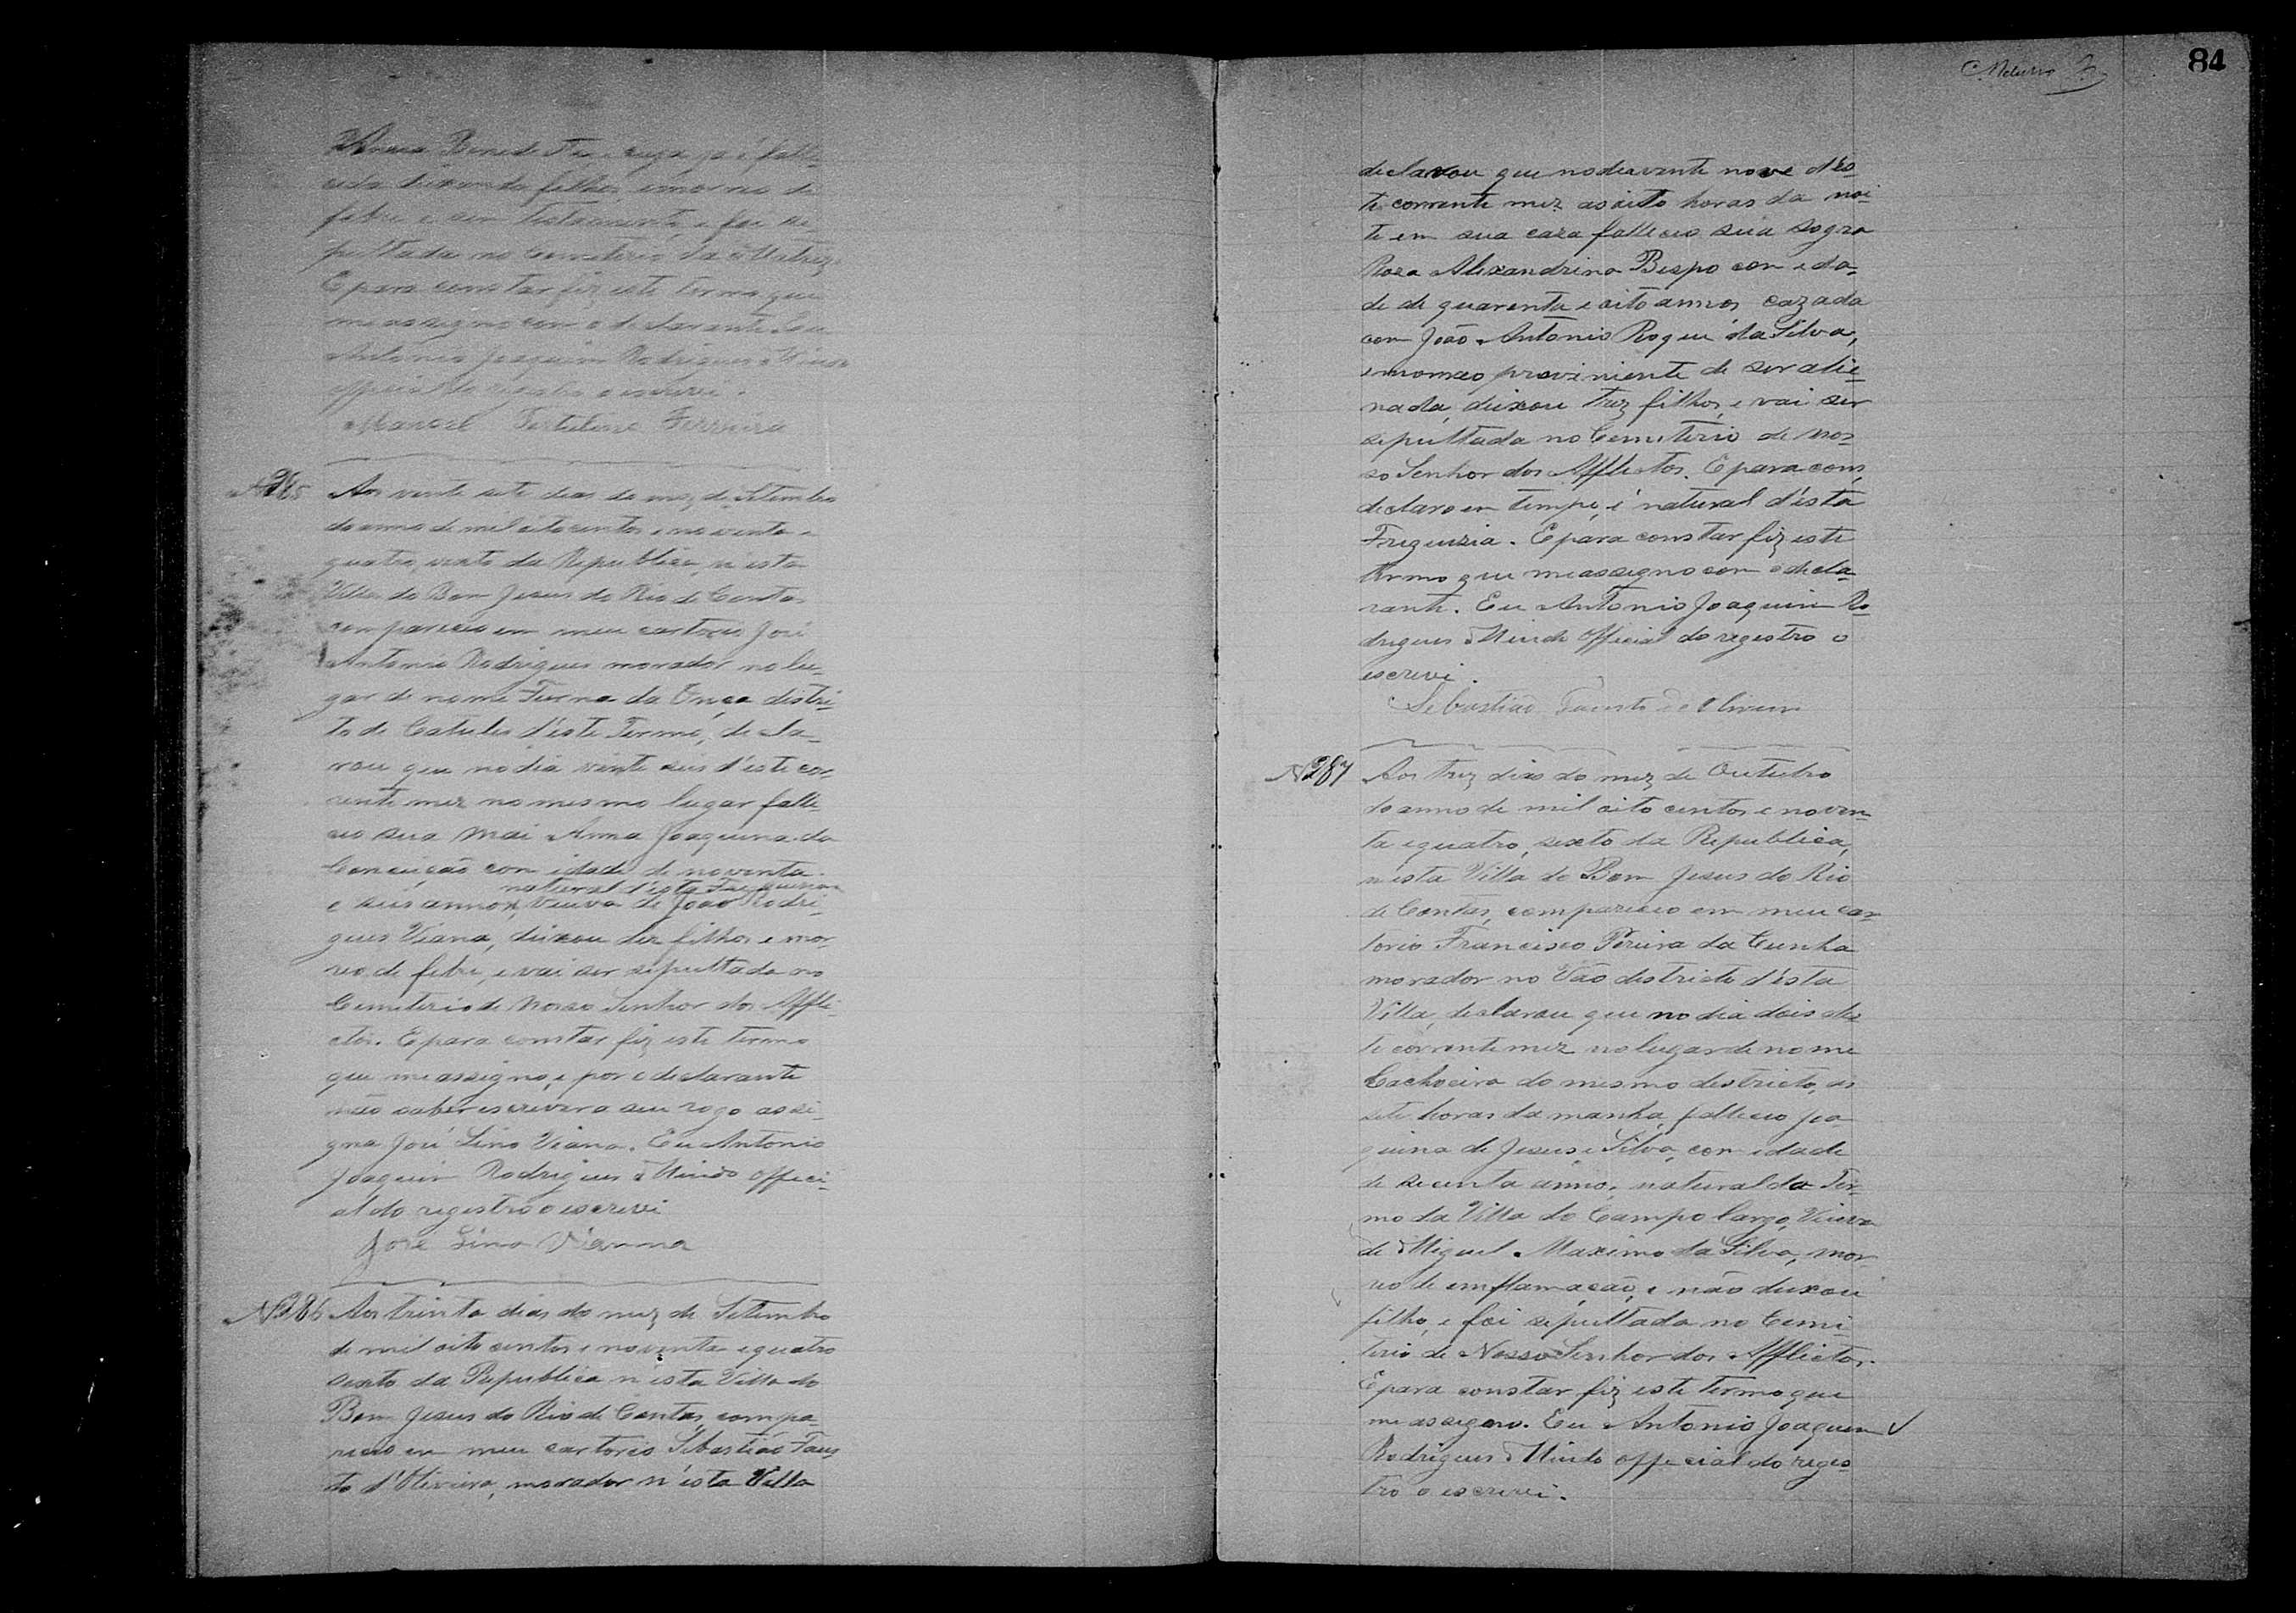 Benedicta, cuja ja é falle-
cida deixando filhos, e morreo de
febre e sem testamento, e foi se-
pultada no Cemeterio da Matriz.
E para constar fiz este termo que
me assigno com o declarante. Eu
Antonio Joaquim Rodrigues
official do registro o escrevi.
Manoel Tertuliano Ferreira
Nº 285 Aos vente sete dias do mez de Setembro
do anno de mil oito centos e noventa e
quatro, sexto da Republica, n'esta
Villa do Bom Jesus do Rio de Contas
compareceo em meu cartorio José
Antonio Rodrigues morador no lu-
gar de nome Furna da Onça distri-
to de Catules d'este Termo, decla-
rou que no dia vinte seis d'este cor-
rente mez no mesmo lugar falle-
ceo sua Mai Anna Joaquina da
Conceição com idade de noventa
natural d'esta Freguezia
e seis annos, Viuva de João Rodri-
gues Viana, deixou dez filhos e mor-
reo de febre, e vai ser sepultada no
Cemeterio de Nosso Senhor dos Affli-
ctos. E para constar fiz este termo
que me assigno, e por o declarante
não saber escrever a seu rogo assi-
gna José Lino Viana. Eu Antonio
Joaquim Rodrigues offici-
al do registro o escrevi
José Lino Vianna
Nº 286 Aos trinta dias do mez de Setembro
de mil oito centos e noventa e quatro
sexto da Republica n'esta Villa do
Bom Jesus do Rio de Contas, compa-
receo em meu cartorio Sebastião Faus-
to d'Oliveira, morador n'esta Villa
84
declarou que no dia vente nove d'es-
te corrente mez as oito horas da noi-
te em sua caza falleceo sua sogra
Roza Alixandrina Bispo com eda-
de de quarenta e oito annos cazada
com João Antonio Roque da Silva,
e morreo proviniente de ser alie-
nada, deixou trez filhos, e vai ser
sepultada no Cemiterio de Nos-
so Senhor dos Afflictos. E para cons,
declaro em tempo, é natural d'esta
Freguizia. E para constar fiz este
termo que me assigno com o decla-
rante. Eu Antonio Joaquim Ro-
drigues official do registro o
escrevi.
Sebastião Fausto de Oliveira
Nº 287 Aos trez dias do mez de Outubro
do anno de mil oito centos e noven-
ta e quatro, sexto da Republica,
n'esta Villa do Bom Jesus do Rio
de Contas, compareceo em meu car-
torio Francisco Pereira da Cunha
morador no Vão districto d'esta
Villa, declarou que no dia dois des-
te corrente mez no lugar de nome
Cachoeira do mesmo districto, as
sete horas da manhã, falleceo Joa-
quina de Jesus e Silva, com idade
de secenta annos, natural do Ter-
mo da Villa do Campo largo, Viuva
de Miguel Maximo da Silva, mor-
reo de emflamação, e não deixou
filho, e foi sepultada no Cemi-
terio de Nosso Senhor dos Afflictos.
E para constar fiz este termo que
me assigno. Eu Antonio Joaquim
Rodrigues official do regis-
tro o escrevi.